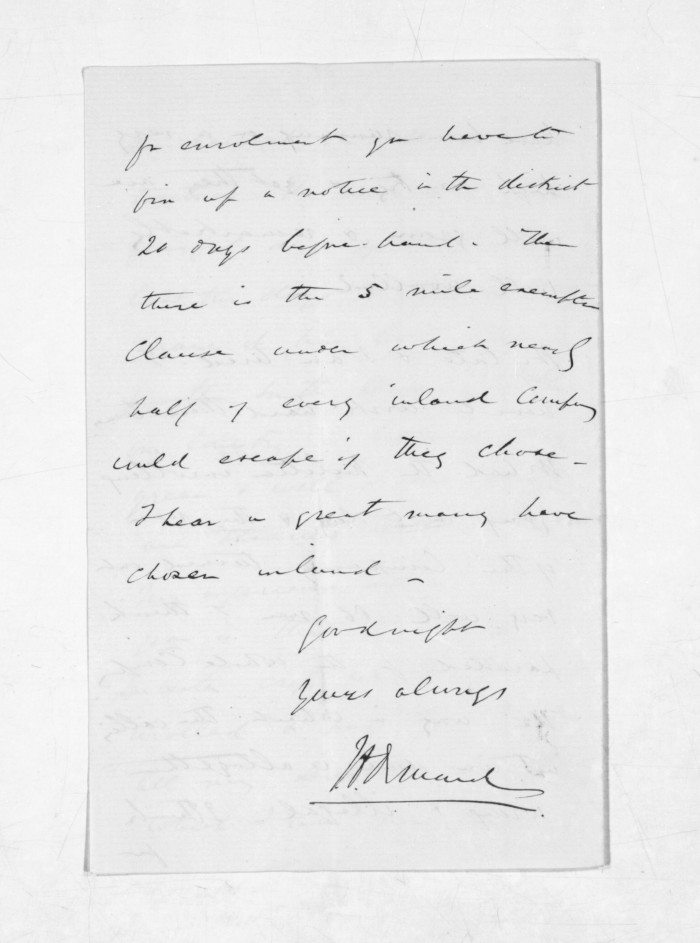 for enrolment you have to
pin up a notice in the district
20 days before-hand. Then
there is the 5 mile exemption
Clause under which nearly
half of every inland Company
could escape if they chose -
I hear a great many have
chosen inland -
Good night
Yours always
J D Ormond